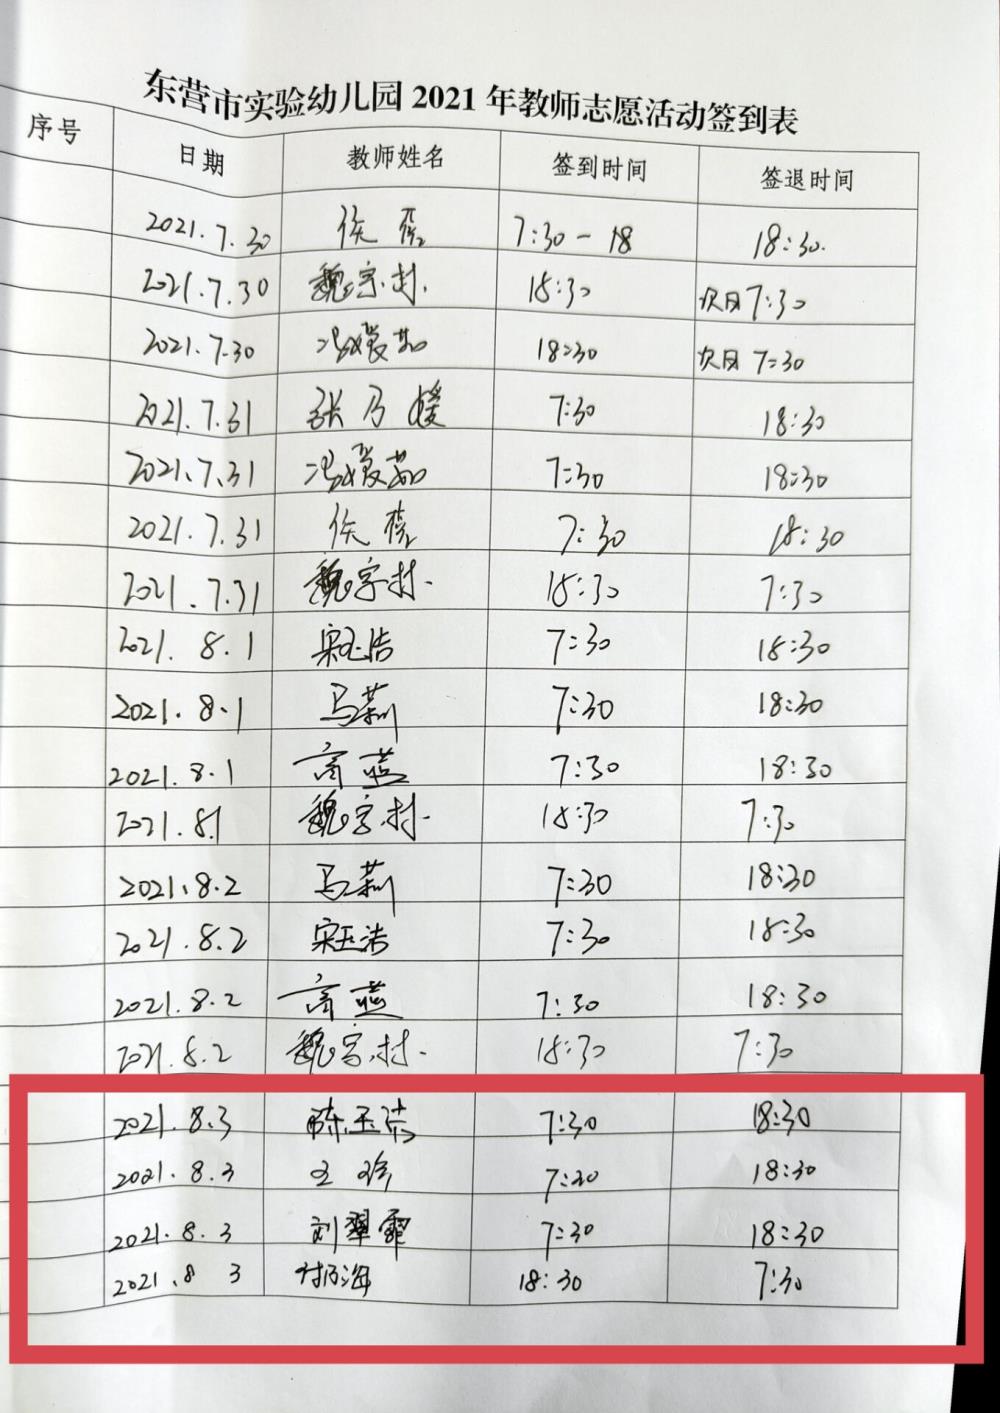 东营市实验幼儿园 2021 年教师志愿活动签到表
序号 日期 教师姓名 签到时间 签退时间
2021.7.30 侯蓓 7:30-18 18:30.
2021.7.30 魏字村. 18:30 次日7:30
2021.7.30 冯媛茹 18:30 次日 7:30
2021.7.31 张乃媛 7:30 18:30
2021.7.31 冯媛茹 7:30 18:30
2021.7.31 侯蓓 7:30 18:30
2021.7.31 魏字村. 18:30 7:30
2021.8.1 宋玉浩 7:30 18:30
2021.8.1 马莉 7:30 18:30
2021.8.1 高蓝 7:30 18:30
2021.8.1 魏字村. 18:30 7:30
2021.8.2 马莉 7:30 18:30
2021.8.2 宋玉浩 7:30 18:30
2021.8.2 高蓝 7:30 18:30
2021.8.2 魏字村. 18:30 7:30
2021.8.3 陈玉洁 7:30 18:30
2021.8.3 王珍 7:30 18:30
2021.8.3 刘翠霏 7:30 18:30
2021.8 3 18:30 7:30